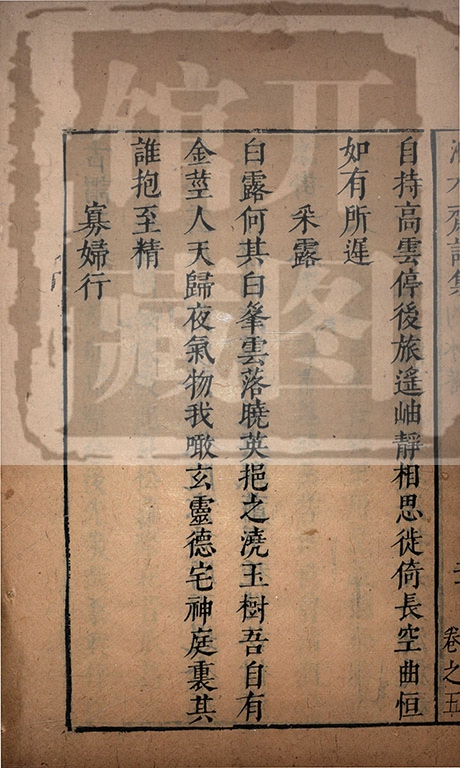 自持高雲停後旅遥岫靜相思徙倚長空曲恒
如有所遲
采露
白露何其白肇雲落曉英挹之澆玉樹吾自有
金莖人天歸夜氣物我噉玄靈德宅神庭裏其
誰抱至精
寡婦行
卷之五
开图
馆藏